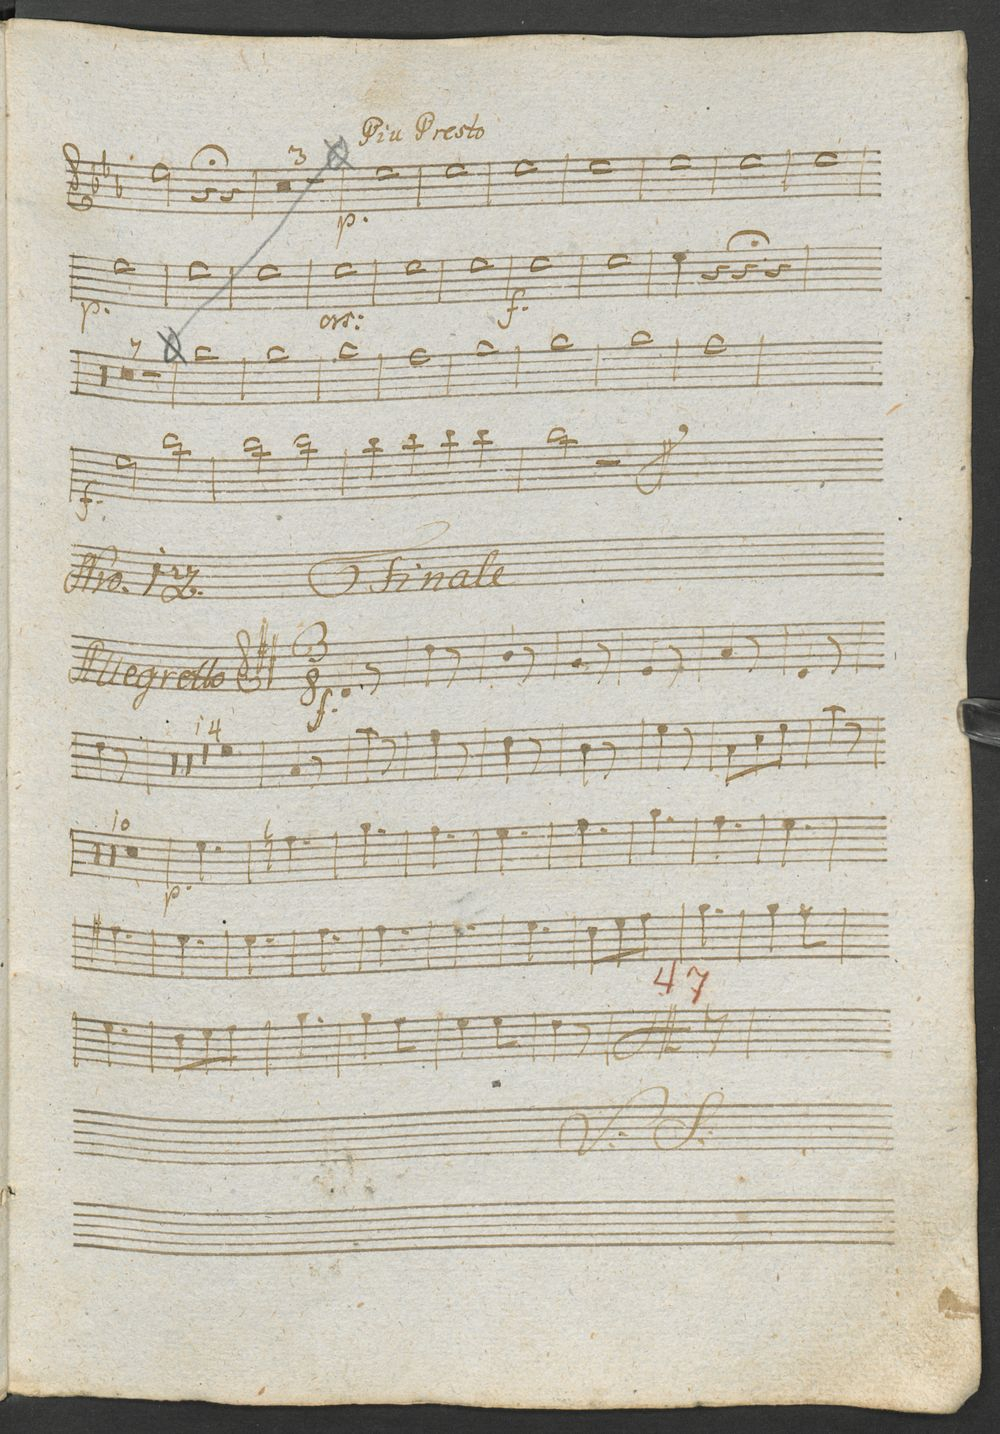 Piu Presto
3
p.
p. f.
7
f.
Nro. 12. Finale
Allegretto 3 8 f.
14
10
p.
47
V. S.